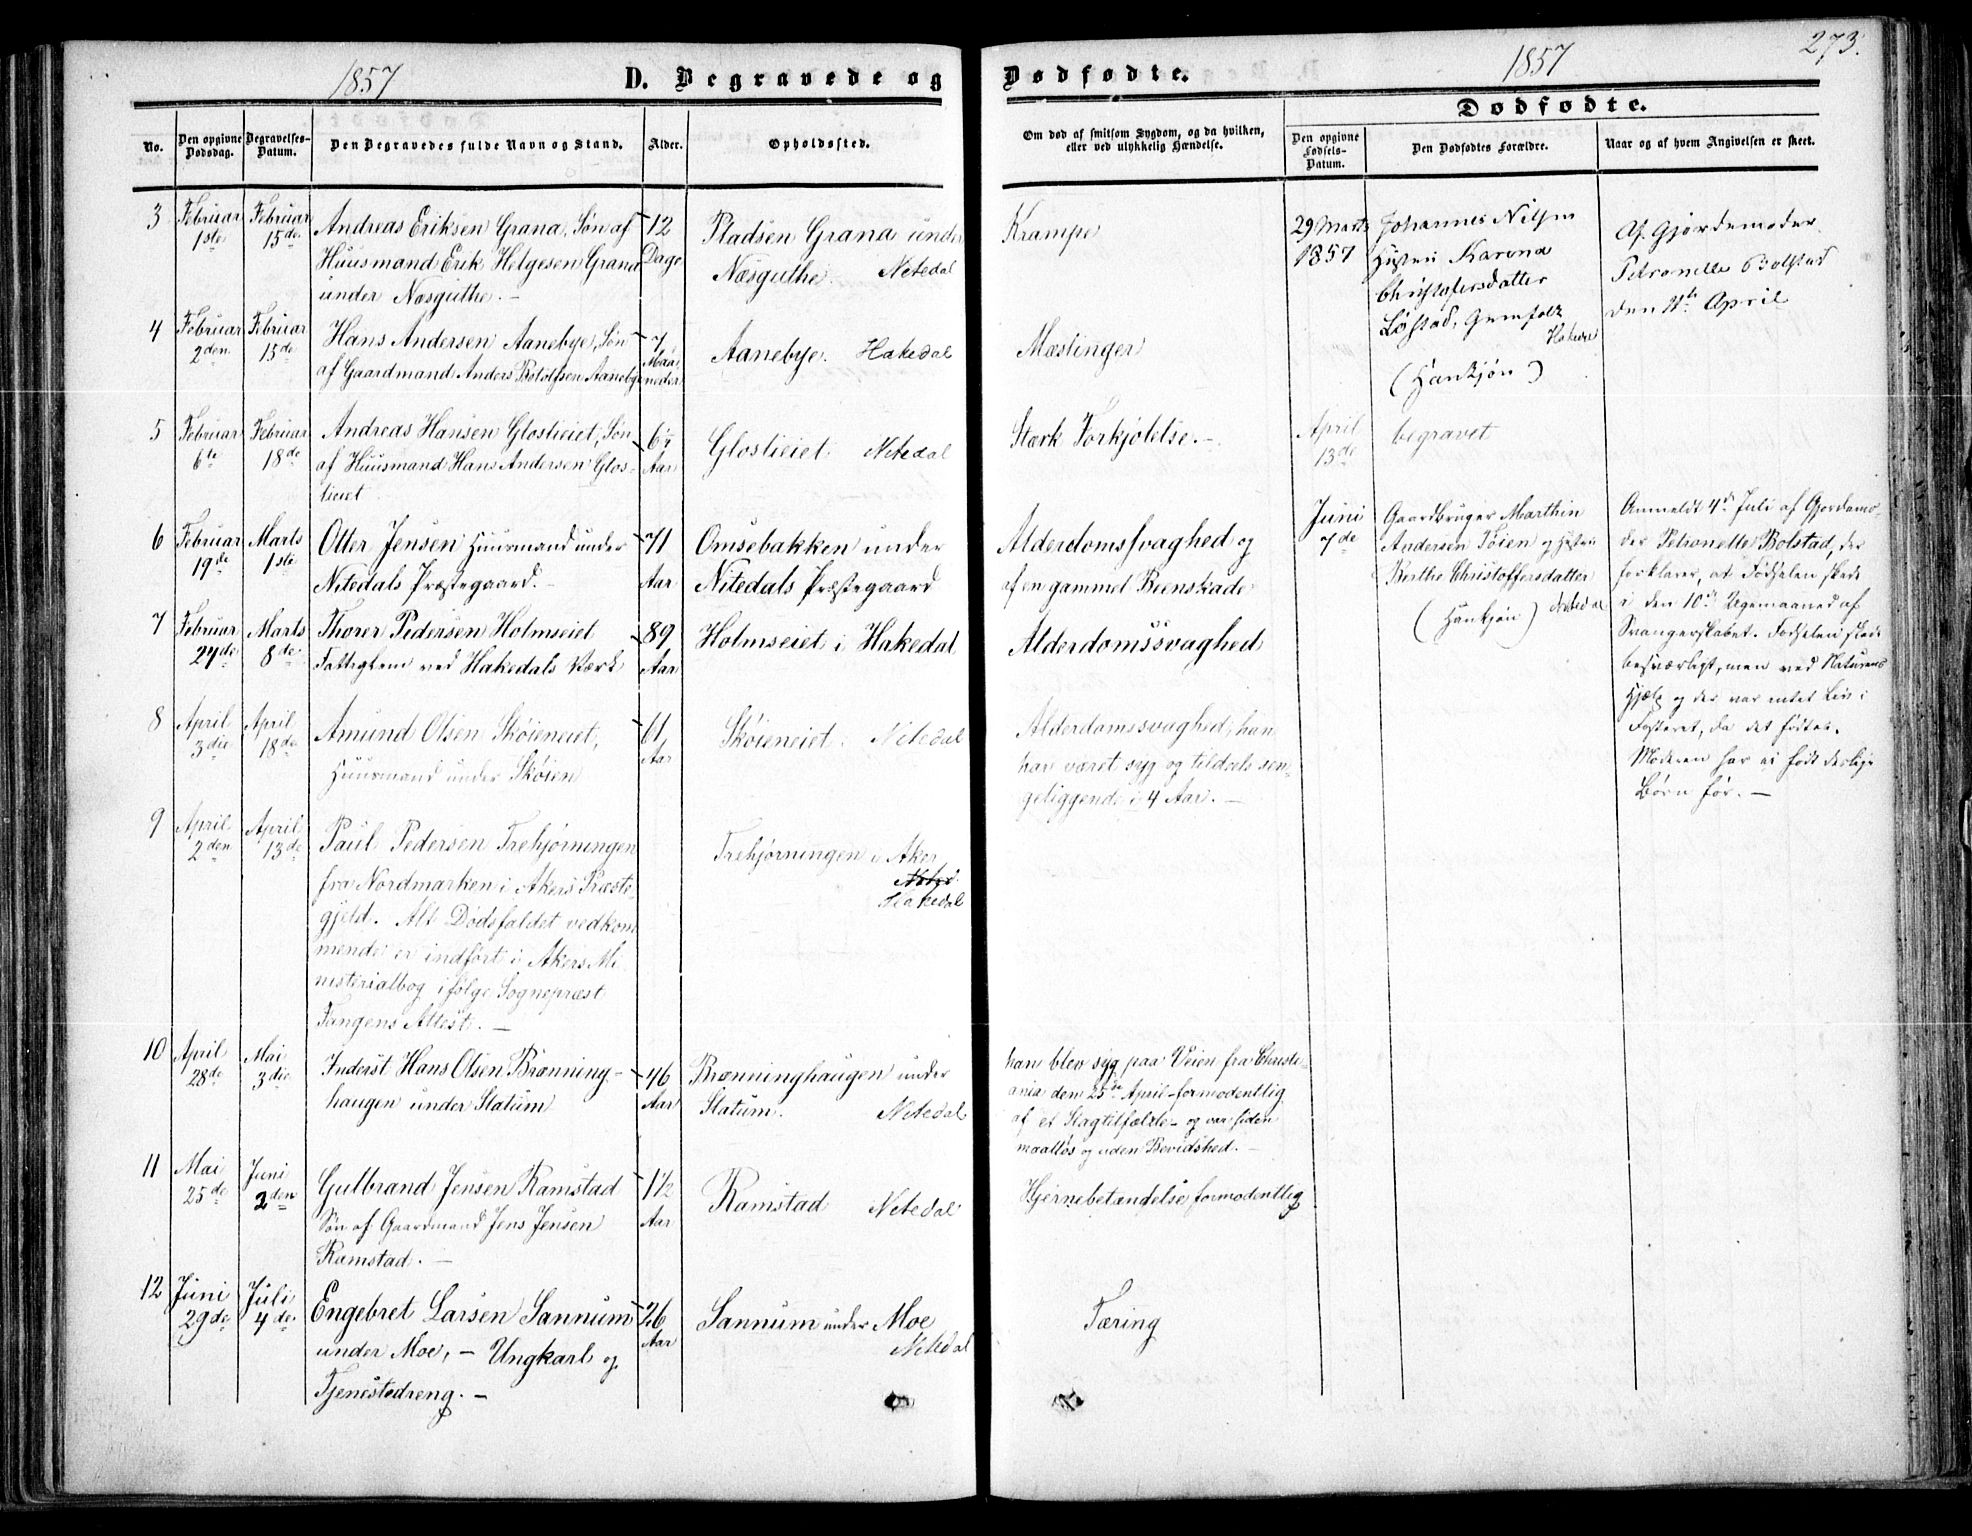 1857
D. Begravede og
No.
Den opgivne Dødsdag.
Begravelses-Datum.
Den Begravedes fulde Navn og Stand.
Alder.
Opholdssted.
3 Februar 1ste Februar 15de
Andreas Eriksen Grana, Søn af
Huusmand Erik Helgesen Grana
under Næsguthe. —
12 Dage
Pladsen Grana under
Næsguthe. Netedal
4 Februar 2den Februar 15de
Hans Andersen Aanebye, Søn
af Gaardmand Anders Botolfsen Aanebye
7 Maaneder
Aanebye. Hakedal
5 Februar 6te Februar 18de
Andreas Hansen Gloslieiet, Søn
af Huusmand Hans Andersen Glos-
lieiet
Aar
Gloslieiet Netedal
6 Februar 19de Marts 1ste
Otter Jensen Huusmand under
Nitedals Præstegaard. —
71 Aar
Omsebakken under
Nitedals Præstegaard
7 Februar 27de Marts 8de
Thorer Pedersen Holmseiet
Fattiglem ved Hakedals Værk
89 Aar
Holmseiet i Hakedal
8 April 3die April 18de
Amund Olsen Skøieneiet,
Huusmand under Skøien
61 Aar
Skøieneiet. Netedal
9 April 2den April 13de
Paul Pedersen Trehjørningen
fra Nordmarken i Akers Præste-
gjeld. Alt Dødsfaldet vedkom
mende er indført i Akers Mi
nisterialbog ifølge Sognepræst
Tangens Attest. —
Trehjørningen i Aker
Neted.
Hakedal
10 April 28de Mai 3die
Inderst Hans Olsen Brønning-
haugen under Slatum
46 Aar
Brønninghaugen under
Slatum. Netedal
11 Mai 25de Juni 2den
Gulbrand Jensen Ramstad
Søn af Gaardmand Jens Jensen
Ramstad. —
1½ Aar
Ramstad Netedal
12 Juni 29de Juli 4de
Engebret Larsen Sannum
under Moe, — Ungkarl og
Tjenestedreng. —
26 Aar
Sannum under Moe
Netedal
Dødfødte.
1857
273.
Om død af smitsom Sygdom, og da hvilken,
eller ved ulykkelig Hændelse.
Dødfødte.
Den opgivne Fødsels-Datum.
Den Dødfødtes Forældre.
Naar og af hvem Angivelsen er skeet.
Krampe
Mæslinger
Stærk Forkjølelse. —
Alderdomssvaghed og
af en gammel Beenskade
Alderdomssvaghed
Alderdomssvaghed, han
har været syg og tildeels sen-
geliggende i 4 Aar. —
han blev syg paa Veien fra Christi-
ania den 25de April formodentlig
af et Slagtilfælde – og var siden
maalløs og uden Bevidshed. —
Hjernebetændelse formodentlig
Tæring
29 Marts
1857
Johannes Nilsen
Hustru Karena
Christofersdatter
Løstad, Gaardfolk
Hakedal
(Hankjøn)
Af Gjordemoder
Petronelle Bolstad
den April
April 13de
begravet
Juni 7de
Gaardbruger Marthin
Andersen Tøien og Hustru
Berthe Christoffersdatter
(Hankjøn) Netedal
Anmeldt 4de Juli af Gjordemo-
der Petronelle Bolstad, der
forklarer, at Fødselen skede
i den 10de Ugemaaned af
Svangerskabet. Fødselen skede
besværligt, men ved Naturens
Hjælp og der var intet Liv i
Fosteret, da det fødtes.
Moderen har ei født deslige
Børn før. —